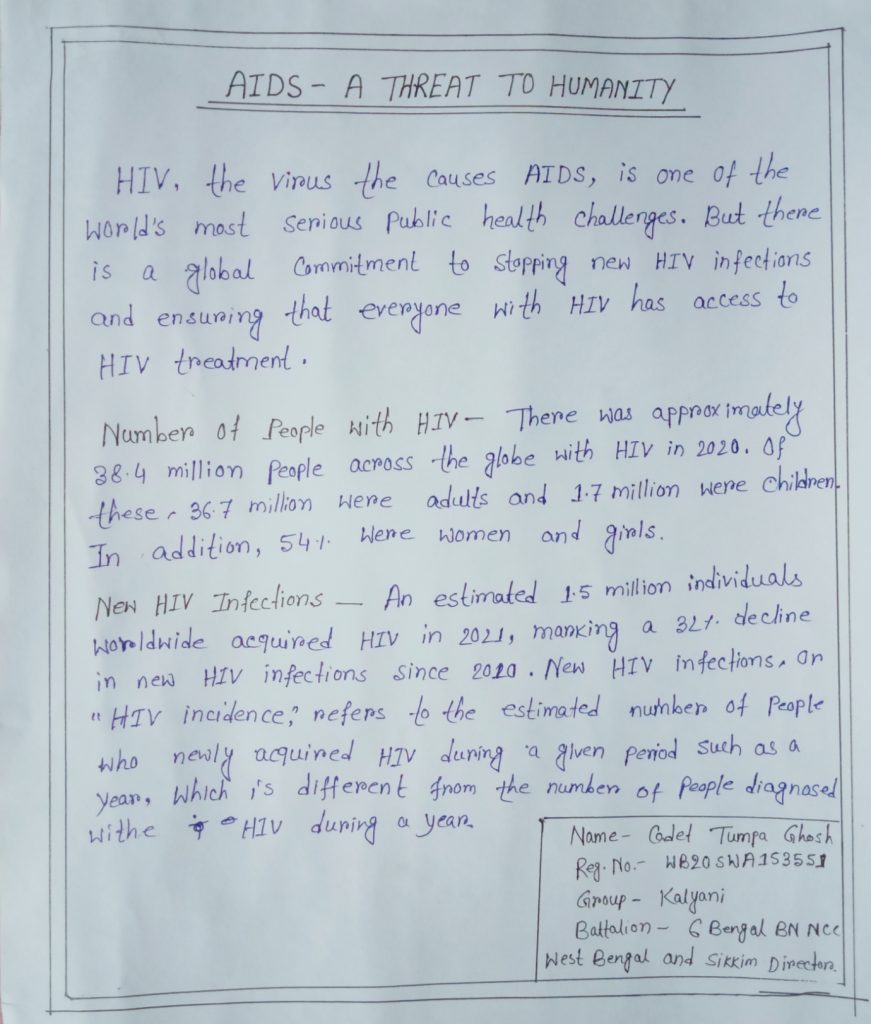 AIDS - A THREAT TO HUMANITY
HIV, the virus the causes AIDS, is one of the
world's most serious Public health challenges. But there
is a global Commitment to stopping new HIV infections
and ensuring that everyone with HIV has access to
HIV treatment.
Number of People with HIV - There was approximately
38.4 million People across the globe with HIV in 2020. Of
these, 36.7 million were adults and 1.7 million were children.
In addition, 54% were women and girls.
New HIV Infections - An estimated 1.5 million individuals
worldwide acquired HIV in 2021, marking a 32% decline
in new HIV infections since 2010. New HIV infections, or
"HIV incidence," refers to the estimated number of People
who newly acquired HIV during a given period such as a
year, which is different from the number of People diagnosed
withe HIV during a year.
Name - Cadet Tumpa Ghosh
Reg. No. - WB20SWA153551
Group - Kalyani
Battalion - 6 Bengal BN NCC
West Bengal and Sikkim Director.